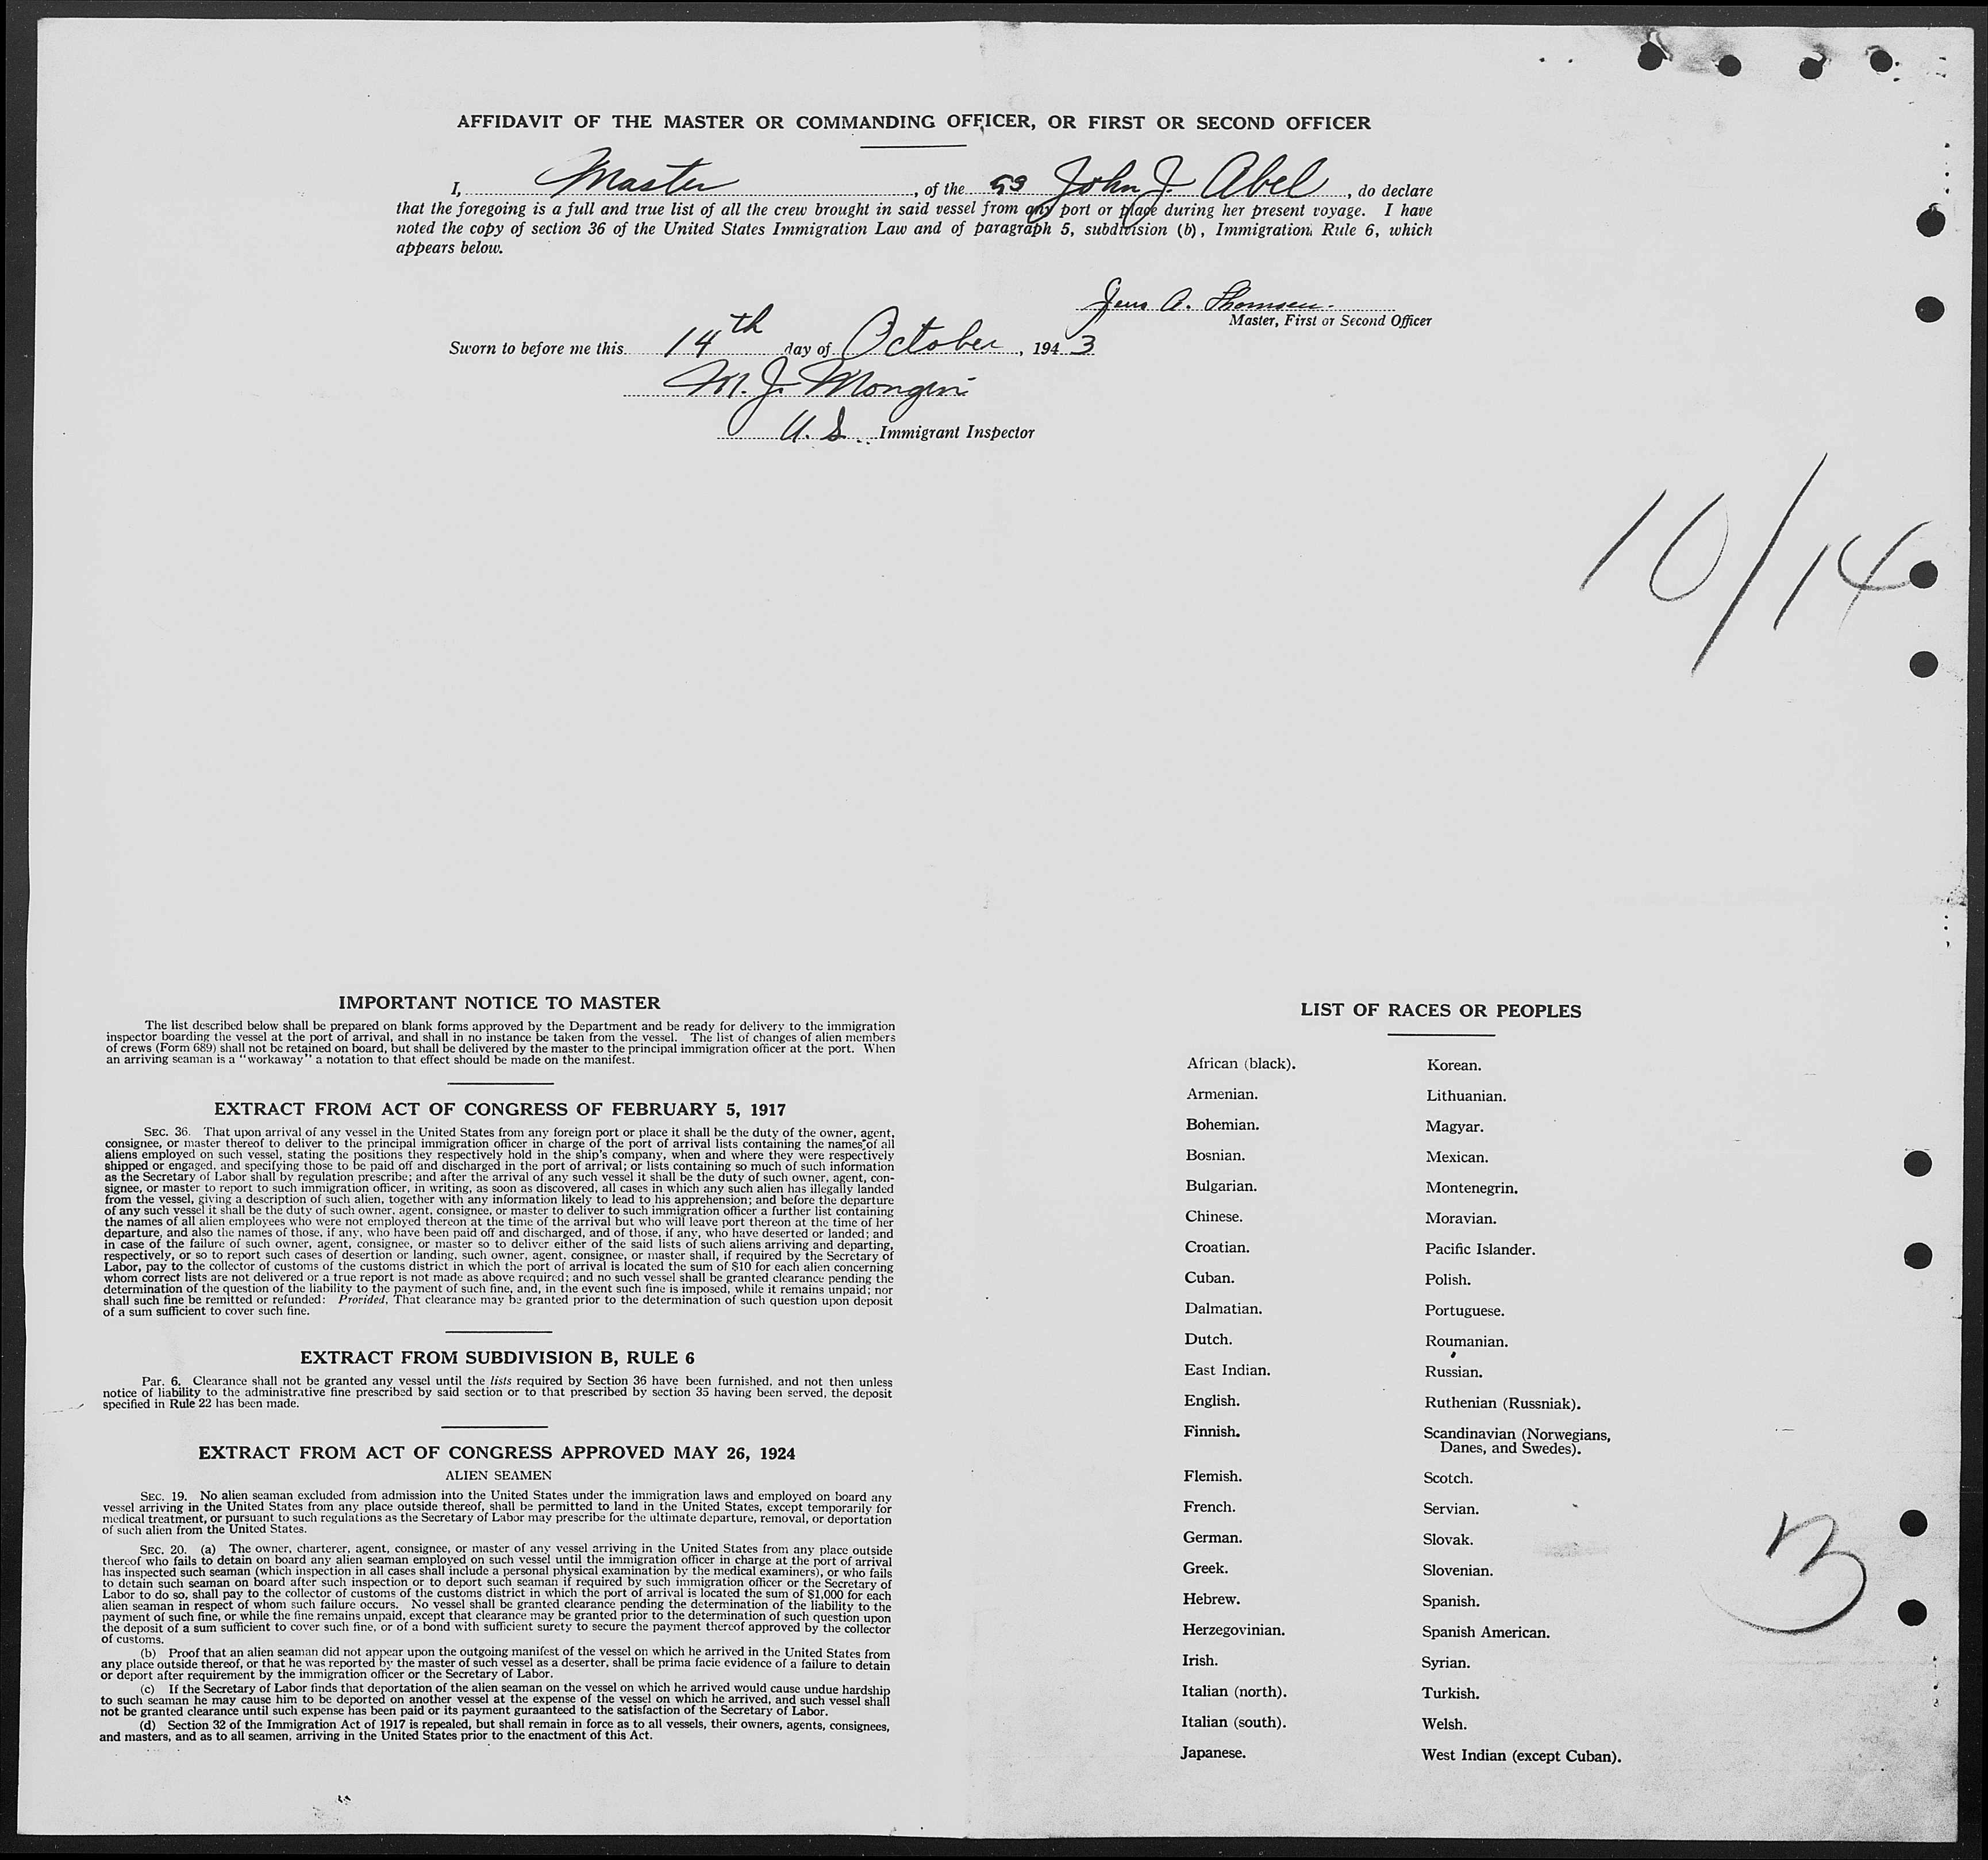 AFFIDAVIT OF THE MASTER OR COMMANDING OFFICER, OR FIRST OR SECOND OFFICER
I, Master, of the SS John J. Abel, do declare
that the foregoing is a full and true list of all the crew brought in said vessel from any port or place during her present voyage. I have
noted the copy of section 36 of the United States Immigration Law and of paragraph 5, subdivision (b), Immigration Rule 6, which
appears below.
Jens A. Thomsen.
Master, First or Second Officer
Sworn to before me this 14th day of October, 1943
M. J. Mongin
U. S. Immigrant Inspector
10/14
IMPORTANT NOTICE TO MASTER
The list described below shall be prepared on blank forms approved by the Department and be ready for delivery to the immigration
inspector boarding the vessel at the port of arrival, and shall in no instance be taken from the vessel. The list of changes of alien members
of crews (Form 689) shall not be retained on board, but shall be delivered by the master to the principal immigration officer at the port. When
an arriving seaman is a "workaway" a notation to that effect should be made on the manifest.
EXTRACT FROM ACT OF CONGRESS OF FEBRUARY 5, 1917
SEC. 36. That upon arrival of any vessel in the United States from any foreign port or place it shall be the duty of the owner, agent,
consignee, or master thereof to deliver to the principal immigration officer in charge of the port of arrival lists containing the names of all
aliens employed on such vessel, stating the positions they respectively hold in the ship's company, when and where they were respectively
shipped or engaged, and specifying those to be paid off and discharged in the port of arrival; or lists containing so much of such information
as the Secretary of Labor shall by regulation prescribe; and after the arrival of any such vessel it shall be the duty of such owner, agent, con-
signee, or master to report to such immigration officer, in writing, as soon as discovered, all cases in which any such alien has illegally landed
from the vessel, giving a description of such alien, together with any information likely to lead to his apprehension; and before the departure
of any such vessel it shall be the duty of such owner, agent, consignee, or master to deliver to such immigration officer a further list containing
the names of all alien employees who were not employed thereon at the time of the arrival but who will leave port thereon at the time of her
departure, and also the names of those, if any, who have been paid off and discharged, and of those, if any, who have deserted or landed; and
in case of the failure of such owner, agent, consignee, or master so to deliver either of the said lists of such aliens arriving and departing,
respectively, or so to report such cases of desertion or landing, such owner, agent, consignee, or master shall, if required by the Secretary of
Labor, pay to the collector of customs of the customs district in which the port of arrival is located the sum of $10 for each alien concerning
whom correct lists are not delivered or a true report is not made as above required; and no such vessel shall be granted clearance pending the
determination of the question of the liability to the payment of such fine, and, in the event such fine is imposed, while it remains unpaid; nor
shall such fine be remitted or refunded: Provided, That clearance may be granted prior to the determination of such question upon deposit
of a sum sufficient to cover such fine.
EXTRACT FROM SUBDIVISION B, RULE 6
Par. 6. Clearance shall not be granted any vessel until the lists required by Section 36 have been furnished, and not then unless
notice of liability to the administrative fine prescribed by said section or to that prescribed by section 35 having been served, the deposit
specified in Rule 22 has been made.
EXTRACT FROM ACT OF CONGRESS APPROVED MAY 26, 1924
ALIEN SEAMEN
SEC. 19. No alien seaman excluded from admission into the United States under the immigration laws and employed on board any
vessel arriving in the United States from any place outside thereof, shall be permitted to land in the United States, except temporarily for
medical treatment, or pursuant to such regulations as the Secretary of Labor may prescribe for the ultimate departure, removal, or deportation
of such alien from the United States.
SEC. 20. (a) The owner, charterer, agent, consignee, or master of any vessel arriving in the United States from any place outside
thereof who fails to detain on board any alien seaman employed on such vessel until the immigration officer in charge at the port of arrival
has inspected such seaman (which inspection in all cases shall include a personal physical examination by the medical examiners), or who fails
to detain such seaman on board after such inspection or to deport such seaman if required by such immigration officer or the Secretary of
Labor to do so, shall pay to the collector of customs of the customs district in which the port of arrival is located the sum of $1,000 for each
alien seaman in respect of whom such failure occurs. No vessel shall be granted clearance pending the determination of the liability to the
payment of such fine, or while the fine remains unpaid, except that clearance may be granted prior to the determination of such question upon
the deposit of a sum sufficient to cover such fine, or of a bond with sufficient surety to secure the payment thereof approved by the collector
of customs.
(b) Proof that an alien seaman did not appear upon the outgoing manifest of the vessel on which he arrived in the United States from
any place outside thereof, or that he was reported by the master of such vessel as a deserter, shall be prima facie evidence of a failure to detain
or deport after requirement by the immigration officer or the Secretary of Labor.
(c) If the Secretary of Labor finds that deportation of the alien seaman on the vessel on which he arrived would cause undue hardship
to such seaman he may cause him to be deported on another vessel at the expense of the vessel on which he arrived, and such vessel shall
not be granted clearance until such expense has been paid or its payment guraanteed to the satisfaction of the Secretary of Labor.
(d) Section 32 of the Immigration Act of 1917 is repealed, but shall remain in force as to all vessels, their owners, agents, consignees,
and masters, and as to all seamen, arriving in the United States prior to the enactment of this Act.
LIST OF RACES OR PEOPLES
African (black).
Armenian.
Bohemian.
Bosnian.
Bulgarian.
Chinese.
Croatian.
Cuban.
Dalmatian.
Dutch.
East Indian.
English.
Finnish.
Flemish.
French.
German.
Greek.
Hebrew.
Herzegovinian.
Irish.
Italian (north).
Italian (south).
Japanese.
Korean.
Lithuanian.
Magyar.
Mexican.
Montenegrin.
Moravian.
Pacific Islander.
Polish.
Portuguese.
Roumanian.
Russian.
Ruthenian (Russniak).
Scandinavian (Norwegians,
Danes, and Swedes).
Scotch.
Servian.
Slovak.
Slovenian.
Spanish.
Spanish American.
Syrian.
Turkish.
Welsh.
West Indian (except Cuban).
3